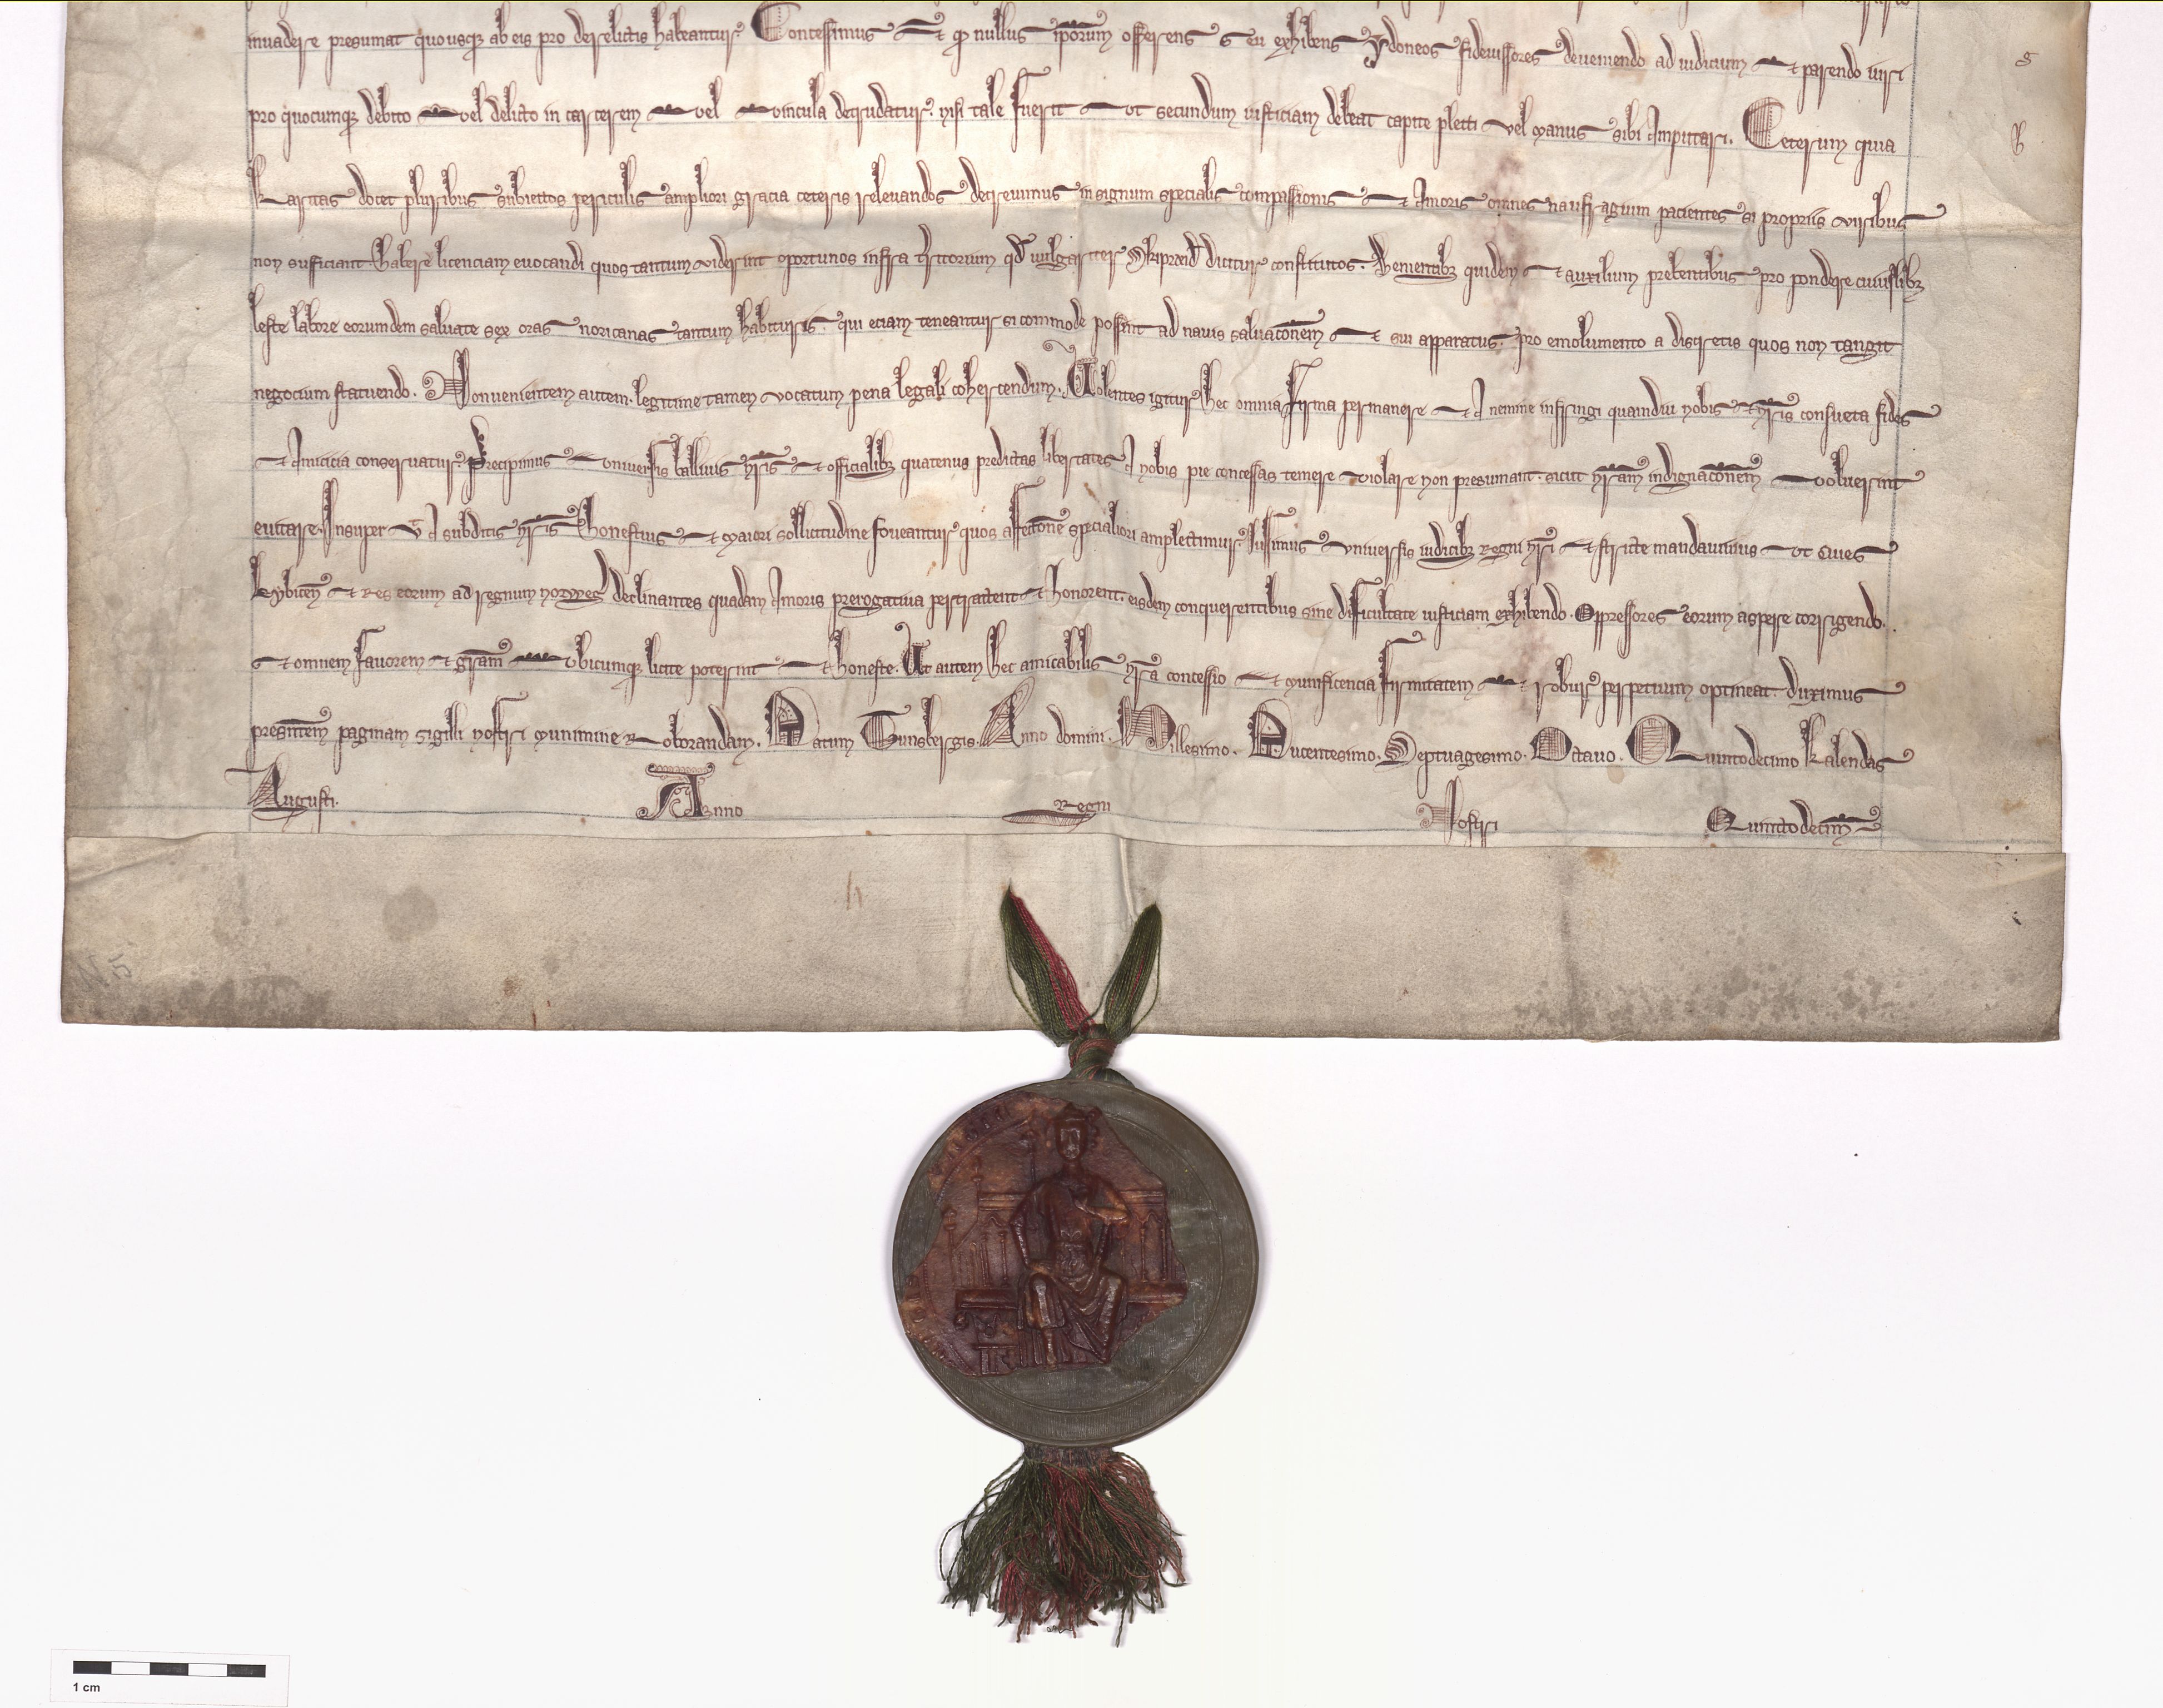 inuadere presumat quousqꝫ ab eis pro derelictis habeantur. Concessimus et qd nullus ip̄orum offerens seu exhibens ydoneos fideiussores de ueniendo ad iudicium et parendo iuri
pro quocumqꝫ debito vel delicto in carcerem vel vincula detrudatur. nisi tale fuerit vt secundum iusticiam debeat capite plecti vel manus sibi amputari. Ceterum quia
karitas docet pluribus subiectos periculis ampliori gracia ceteris releuandos decreuimus in signum specialis compassionis et amoris omnes naufragium pacientes si propriis viribus
non sufficiant habere licenciam euocandi quos tantum viderint oportunos infra territorium qd̄ wlgariter dicitur constitutos. Venientibꝫ quidem et auxilium prebentibus pro pondere cuiuslibꝫ
leste labore eorumdem saluate sex oras noricanas tantum habituris. qui eciam teneantur si commode possint ad nauis saluac̄onem et sui apparatus. pro emolumento a discretis quos non tangit
negocium statuendo. Non uenientem autem. legitime tamen vocatum pena legali cohercendum. Volentes igitur hec omnia firma permanere et a nemine infringi quamdiu nobis et nr̄is consueta fides
et amicicia conseruatur. precipimus vniuersis balliuis nr̄is et officialibꝫ quatenus predictas libertates a nobis pie concessas temere violare non presumant. sicut nr̄am indignac̄onem voluerint
euitare. Insuper vt a subditis nr̄is honestius et maiori sollicitudine foueantur quos affectione specialiori amplectimur. Iussimus vniuersis iudicibꝫ Regni nr̄i et stricte mandauimus vt Ciues
Lybicen̄ et Res eorum ad regnum norweḡ declinantes quadam amoris prerogatiua pertractent et honorent. eisdem conquerentibus sine difficultate iusticiam exhibendo. Oppressores eorum aspere corrigendo.
et omnem fauorem et gr̄am vbicumqꝫ licite poterint et honeste. Ut autem hec amicabilis nr̄a concessio et munificencia firmitatem et robur perpetuum optineat. duximus
presentem paginam sigilli nostri munimine Roborandam. Datum Tunsbergis. Anno domini. Millesimo. Ducentesimo. Septuagesimo. Octauo. Quintodecimo kalendas
Augusti. Anno Regni Nostri Quintodecim̄
1 cm